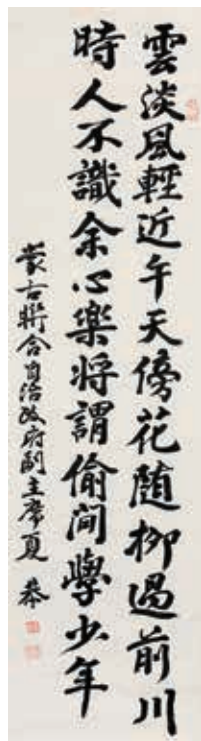 雲淡風輕近午天傍花随柳過前川
時人不識余心樂将謂偷閒學少年
蒙古聯合自治政府副主席夏恭